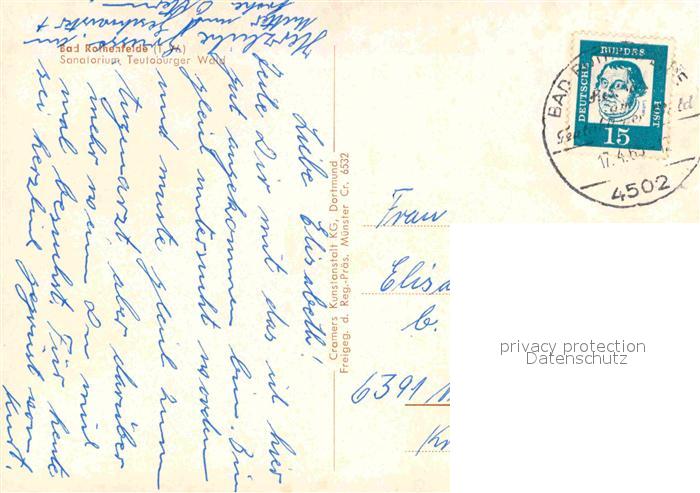 Bad Rothenfelde (T. W.)
Sanatorium Teutoburger Wald
Liebe Elisabeth!
Teile Dir mit das ich hier
gut angekommen bin. Bin
gleich untersucht worden
und muste gleich zum
Augenarzt, aber darüber
mehr wenn Du mich
mal besuchst. Für heute
sei herzlich gegrüst von
Kurt.
Herzliche
Mutter und Eltern
Cramers Kunstanstalt KG, Dortmund
Freigeg. d. Reg.-Präs. Münster Cr. 6532
DEUTSCHE BUNDESPOST
15
BAD
17.4.63
4502
Frau
Elisa
b.
6391
Kr
privacy protection
Datenschutz